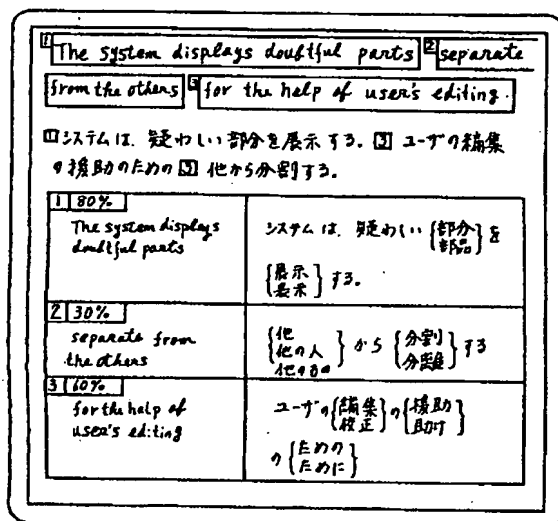 1 The system displays doubtful parts 2 separate
from the others 3 for the help of user's editing.
1 システムは、疑わしい部分を展示する。3 ユーザの編集
の援助のための 3 他から分割する。
1 80%
The system displays
doubtful parts
システムは、疑わしい {部分 部品} を
{展示 表示} する。
2 30%
separate from
the others
{他 他の人 他の} から {分割 分離} する
3 60%
for the help of
user's editing
ユーザの {編集 校正} の {援助 助け}
の {ための ために}